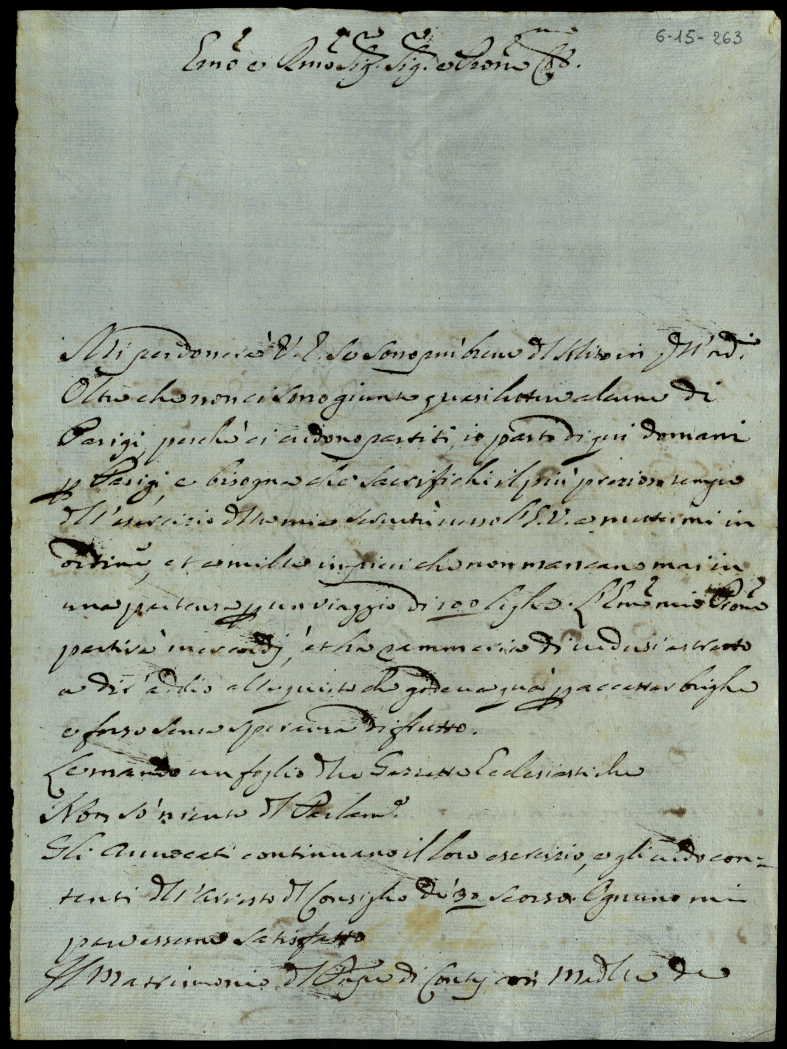 6-15-263
Emo e Rmo Sig. Sig. e Prone
Mi perdonerà V. E. se sono più breve del solito in
Oltre che non ci sono giunte quasi lettere alcune di
Parigi, perchè ci credono partiti, io parto di qui domani
p Parigi, e bisogna che sacrifichi il più prezioso tempo
dell'esercizio della mia servitù verso l'E.V. a mettermi in
ordine, et a mille impicci che non mancano mai in
una partenza p un viaggio di 100 lighe. L'Emo mio Prone
partirà mercordj, et ha gran di vedersi astretto
a dir addio alla quiete che godeva quà p accettar brighe
e forse senza speranza di frutto.
Le mando un foglio delle Gazzette Ecclesiastiche
Non sò niente del Parlamo.
Gli Avvocati continuano il loro esercizio, e gli credo con=
tenti dell'arresto del Consiglio de' 30 scorso. Ognuno mi
pare esserne satisfatto
Il Matrimonio del Pnpe di Contj con Madlla de